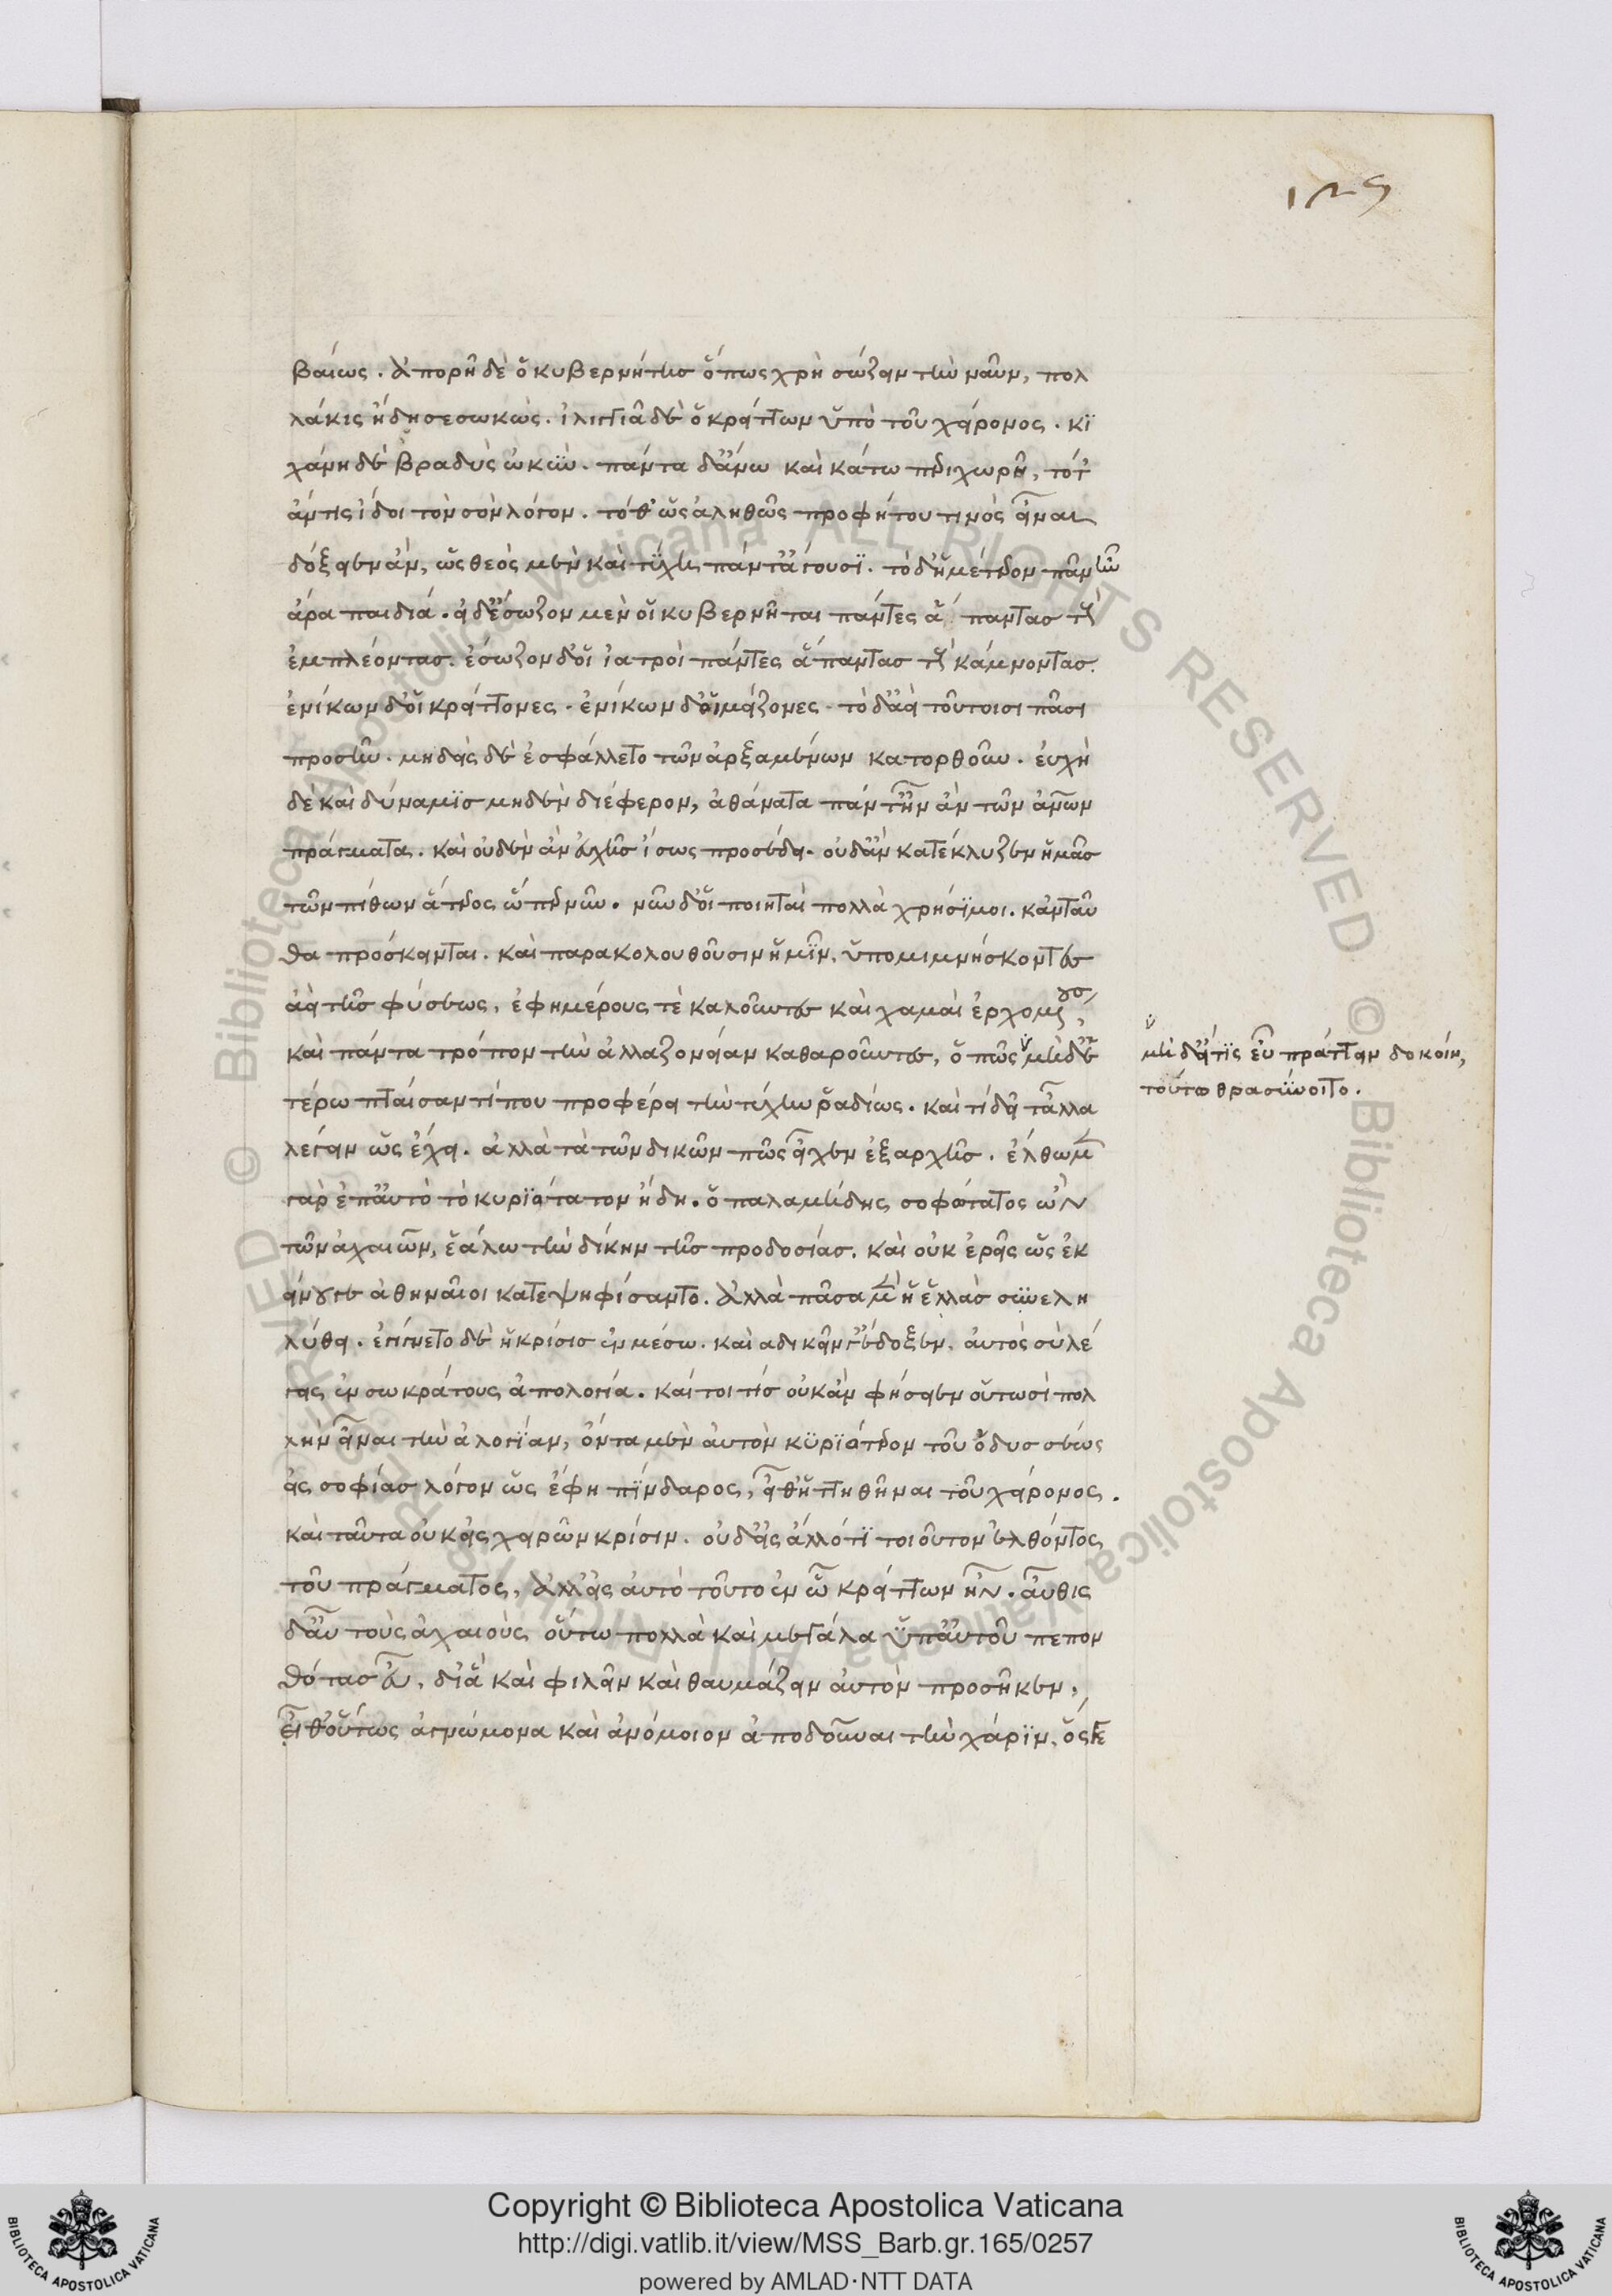 125
βαίως. ἀπορεῖ δὲ ὁ κυβερνήτης ὅπως χρὴ σώζειν τὴν ναῦν, πολ
λάκις ἤδη σεσωκὼς. ἰλιγγιᾶ δὲ ὁ κράττων ὑπὸ τοῦ χείρονος. κι
χάνη δὲ βραδὺς ὠκὺν. πάντα δ' ἄνω καὶ κάτω περιχωρεῖ, τότ'
ἄν τις ἴδοι τὸν σὸν λόγον. τόθ' ὡς ἀληθῶς προφήτου τινὸς εἶναι
δόξειεν ἂν, ὡς θεὸς μὲν καὶ τύχη πάντ' ἄγουσι. τὸ δ' ἡμέτερον πᾶν ἦν
ἄρα παιδιά. εἰ δ' ἔσωζον μὲν οἱ κυβερνῆται πάντες ἅπαντας τοὺς
ἐμπλέοντας. ἔσωζον δ' οἱ ἰατροὶ πάντες ἅπαντας τοὺς κάμνοντας.
ἐνίκων δ' οἱ κρείττονες. ἐνίκων δ' οἱ μείζονες. τὸ δ' ἀεὶ τούτοισι πᾶσι
προσῆν. μηδεὶς δὲ ἐσφάλλετο τῶν ἀρξαμένων κατορθοῦν. εὐχὴ
δὲ καὶ δύναμις μηδὲν διέφερον, ἀθάνατα πάντ' ἦν ἂν τῶν ἀνων
πράγματα. καὶ οὐδὲν ἂν εὐχῆς ἴσως προσέδει. οὐδ' ἂν κατέκλυζεν ἡμᾶς
τῶν πίθων ἅτερος ὥπερ νῦν. νῦν δ' οἱ ποιηταὶ πολλὰ χρήσιμοι. κἀνταῦ
θα πρόσκεινται. καὶ παρακολουθοῦσιν ἡμῖν, ὑπομιμνήσκοντες
ἀεὶ τῆς φύσεως, ἐφημέρους τὲ καλοῦντες καὶ χαμαὶ ἐρχομένους,
καὶ πάντα τρόπον τὴν ἀλλαζονείαν καθαροῦντες, ὅπως μὴ δευ
τέρω πταίσαντί που προφέρει τὴν τύχην ῥαδίως. καὶ τί δεῖ τἆλλα
λέγειν ὡς ἔχει. ἀλλὰ τὰ τῶν δικῶν πῶς εἶχεν ἐξαρχῆς. ἔλθωμεν
γὰρ ἐπ' αὐτὸ τὸ κυριώτατον ἤδη. ὁ παλαμήδης σοφώτατος ὢν
τῶν ἀχαιῶν, ἑάλω τὴν δίκην τῆς προδοσίας. καὶ οὐκ ἐρεῖς ὡς ἐκ
είνου γε ἀθηναῖοι κατεψηφίσαντο. ἀλλὰ πᾶσα μὲν ἡ ἑλλὰς συνελη
λύθει. ἐγίγνετο δὲ ἡ κρίσις ἐν μέσω. καὶ αδικεῖν γ' ἔδοξεν. αὐτὸς σὺ λέ
γεις ἐν σωκράτους ἀπολογία. καίτοι τίς οὐκ ἂν φήσειεν οὑτωσὶ πολ
λὴν εἶναι τὴν ἀλογίαν, ὄντα μὲν αὐτὸν κυριώτερον τοῦ ὀδυσσέως
εἰς σοφίας λόγον ὡς ἔφη πίνδαρος, εἶθ' ἡττηθῆναι τοῦ χείρονος.
καὶ ταῦτα οὐκ εἰς χειρῶν κρίσιν. οὐδ' εἰς ἄλλό τι τοιοῦτον ἐλθόντος
τοῦ πράγματος, ἀλλ' εἰς αὐτὸ τοῦτο ἐν ὧ κρείττων ἦν. αὖθις
δ' αὖ τοὺς ἀχαιοὺς οὕτω πολλὰ καὶ μεγάλα ὑπ' αὐτοῦ πεπον
θότας εὖ, δι' ἃ καὶ φιλεῖν καὶ θαυμάζειν αὐτὸν προσῆκεν,
εἶθ' οὕτως ἀγνώμονα καὶ ἀνόμοιον ἀποδοῦναι τὴν χάριν, ὅς γε
μὴ δ' εἴ τις εὖ πράττειν δοκοίη,
τούτω θρασύνοιτο.
Copyright © Biblioteca Apostolica Vaticana
http://digi.vatlib.it/view/MSS_Barb.gr.165/0257
powered by AMLAD·NTT DATA